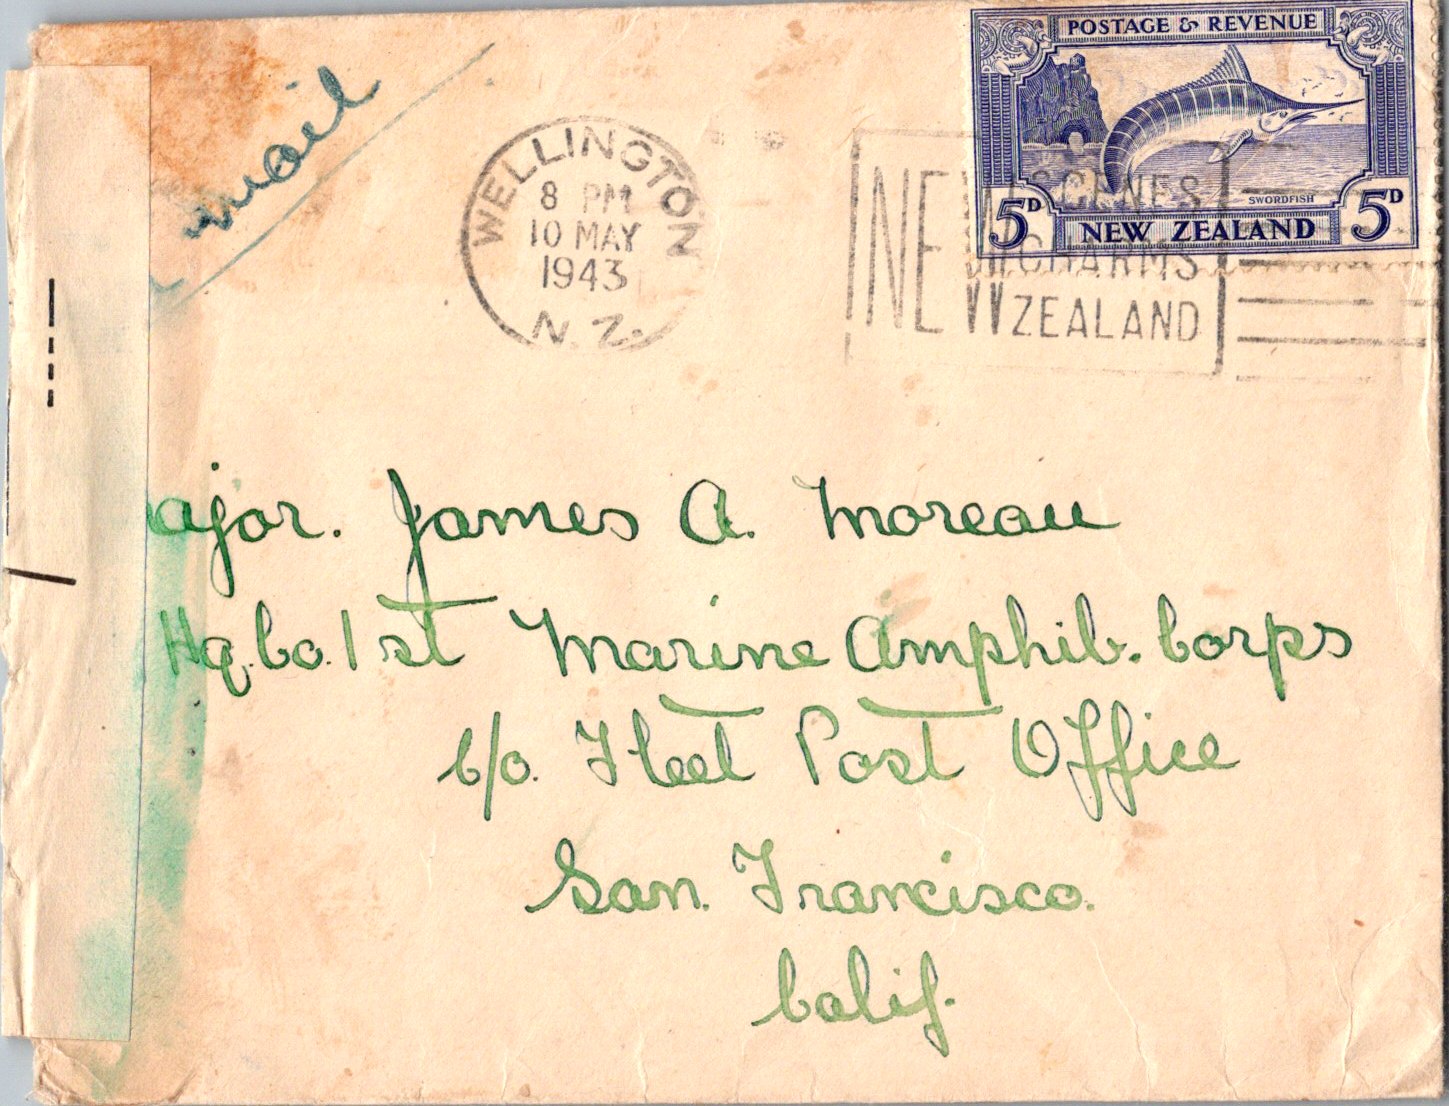 mail
POSTAGE & REVENUE
SWORDFISH
5D NEW ZEALAND 5D
WELLINGTON
8 PM
10 MAY
1943
N.Z.
NEW SCENES
NEW CHARMS
ZEALAND
ajor. James A. Moreau
Hq. Co. 1st Marine Amphib. Corps
c/o. Fleet Post Office
San. Francisco.
Calif.